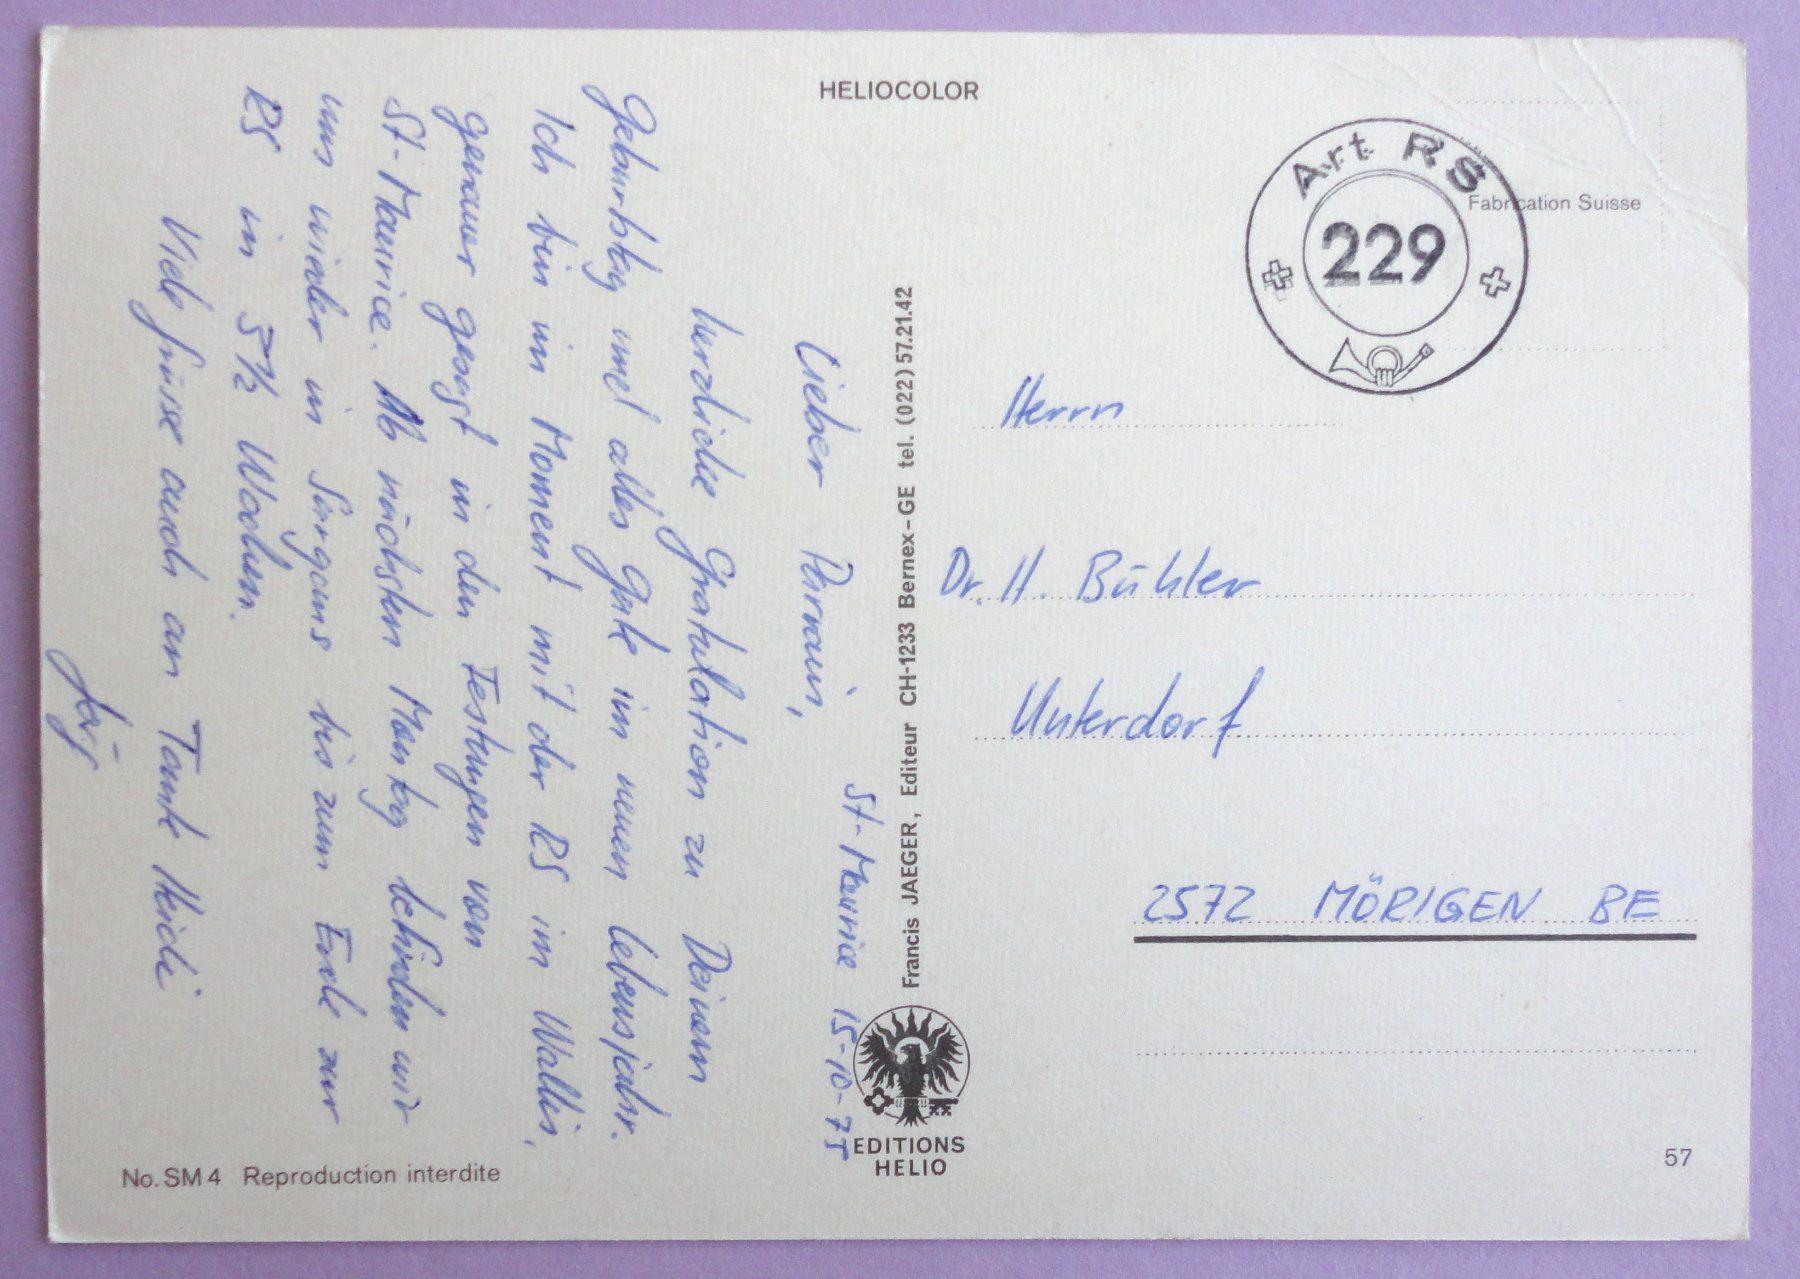 HELIOCOLOR
St-Maurice 15-10-75
Lieber Parrain,
herzliche Gratulation zu Deinem
Geburtstag und alles Gute im neuen Lebensjahr.
Ich bin im Moment mit der RS im Wallis,
genauer gesagt in den Festungen von
St-Maurice. Ab nächsten Montag befinden wir
uns wieder in Sargans bis zum Ende zur
RS in 5½ Wochen.
Viele Grüsse auch an Tante Heidi
Jürg
No. SM 4 Reproduction interdite
Francis JAEGER, Editeur CH-1233 Bernex-GE tel. (022) 57.21.42
EDITIONS
HELIO
Art RS
229
Fabrication Suisse
Herrn
Dr. H. Bühler
Unterdorf
2572 MÖRIGEN BE
57